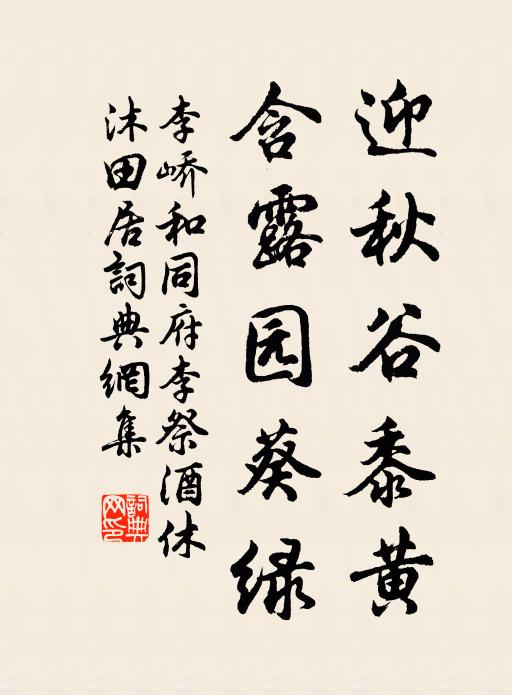 迎秋谷黍黄
含露园葵绿
李峤和同府李祭酒休
沐田居詞典網集
詞典网印